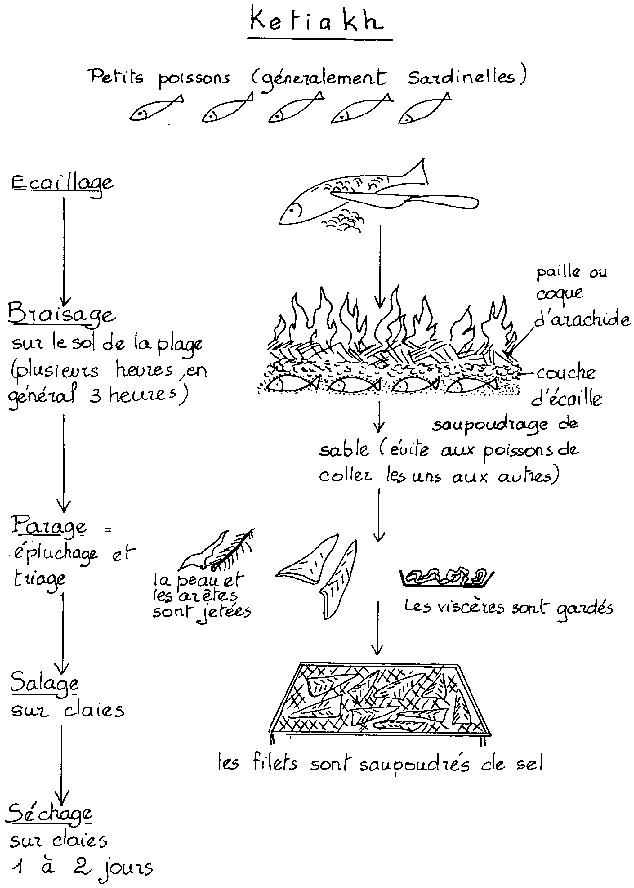 Ketiakh
Petits poissons (géneralement Sardinelles)
Ecaillage
Braisage
sur le sol de la plage
(plusieurs heures, en
général 3 heures)
paille ou
coque
d'arachide
couche
d'écaille
saupoudrage de
sable (évite aux poissons de
coller les uns aux autres)
Parage =
épluchage et
triage
la peau et
les arêtes
sont jetées
Les viscères sont gardés
Salage
sur claies
les filets sont saupoudrés de sel
Séchage
sur claies
1 à 2 jours